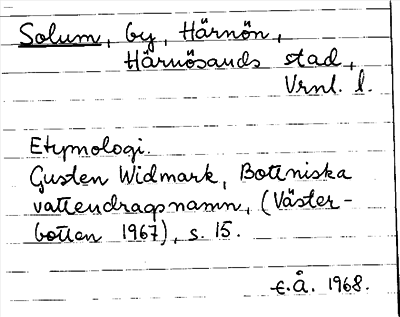 Solum, by, Härnön,
Härnösands stad,
Vrnl. l.
Etymologi.
Gusten Widmark, Bottniska
vattendragsnamn, (Väster-
botten 1967), s. 15.
E.Å. 1968.